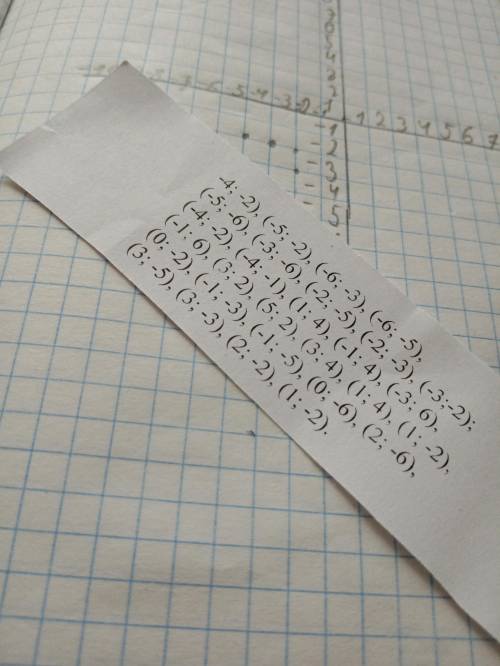 1 2 3 4 5 6 7
-1
-2
-3
-4
-5
4; -2), (-5; -2), (-6; -3), (-6; -5),
(-5; -6), (-3; -6) (-2; -5), (-2; -3), (-3; -2);
(-4; -2), (-4; -1), (1; 4), (-1; 4), (-3; 6),
(-1; 6), (3; 2), (5; 2) (3; 4), (1; 4), (1; -2),
(0; -2), (-1; -3), (-1; -5), (0; -6), (2; -6),
(3; -5), (3; -3), (2; -2), (1; -2).